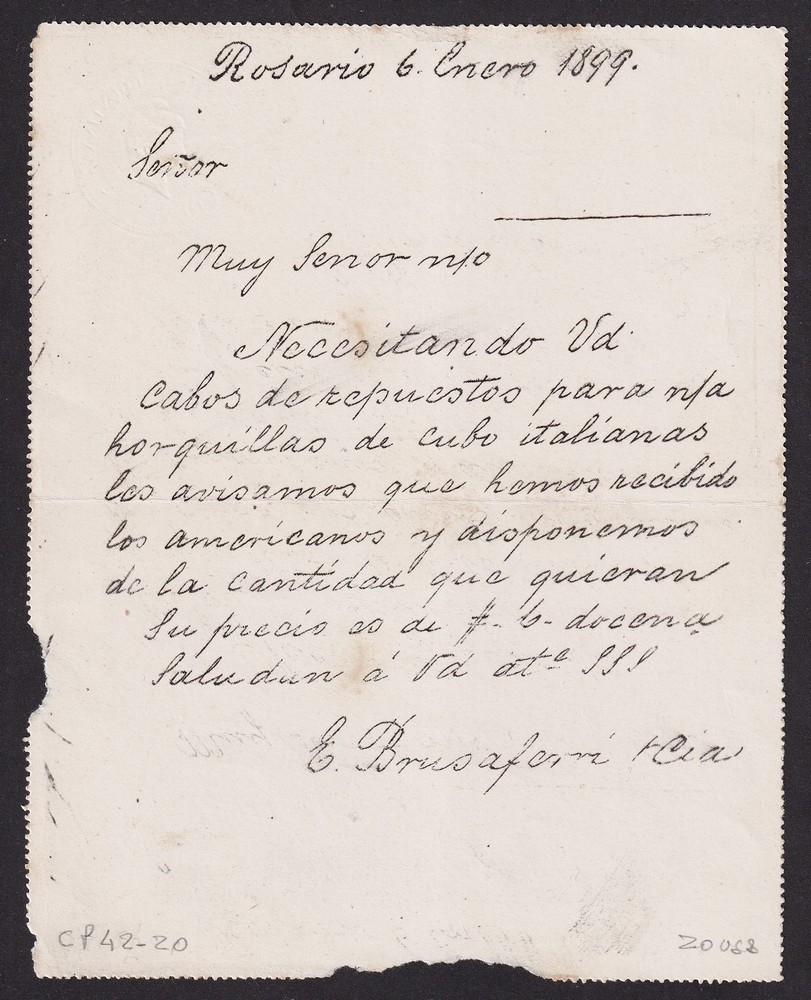 Rosario 6. Enero 1899.
Señor
Muy Senor n/o
Necesitando Vd.
cabos de repuestos para n/a
horquillas de cubo italianas
les avisamos que hemos recibido
los americanos y disponemos
de la cantidad que quieran
Su precio es de $ - 6 - docena
Saludan á Vd atᵗᵃ SSS
E. Brusaferri & Cia
CP42-20